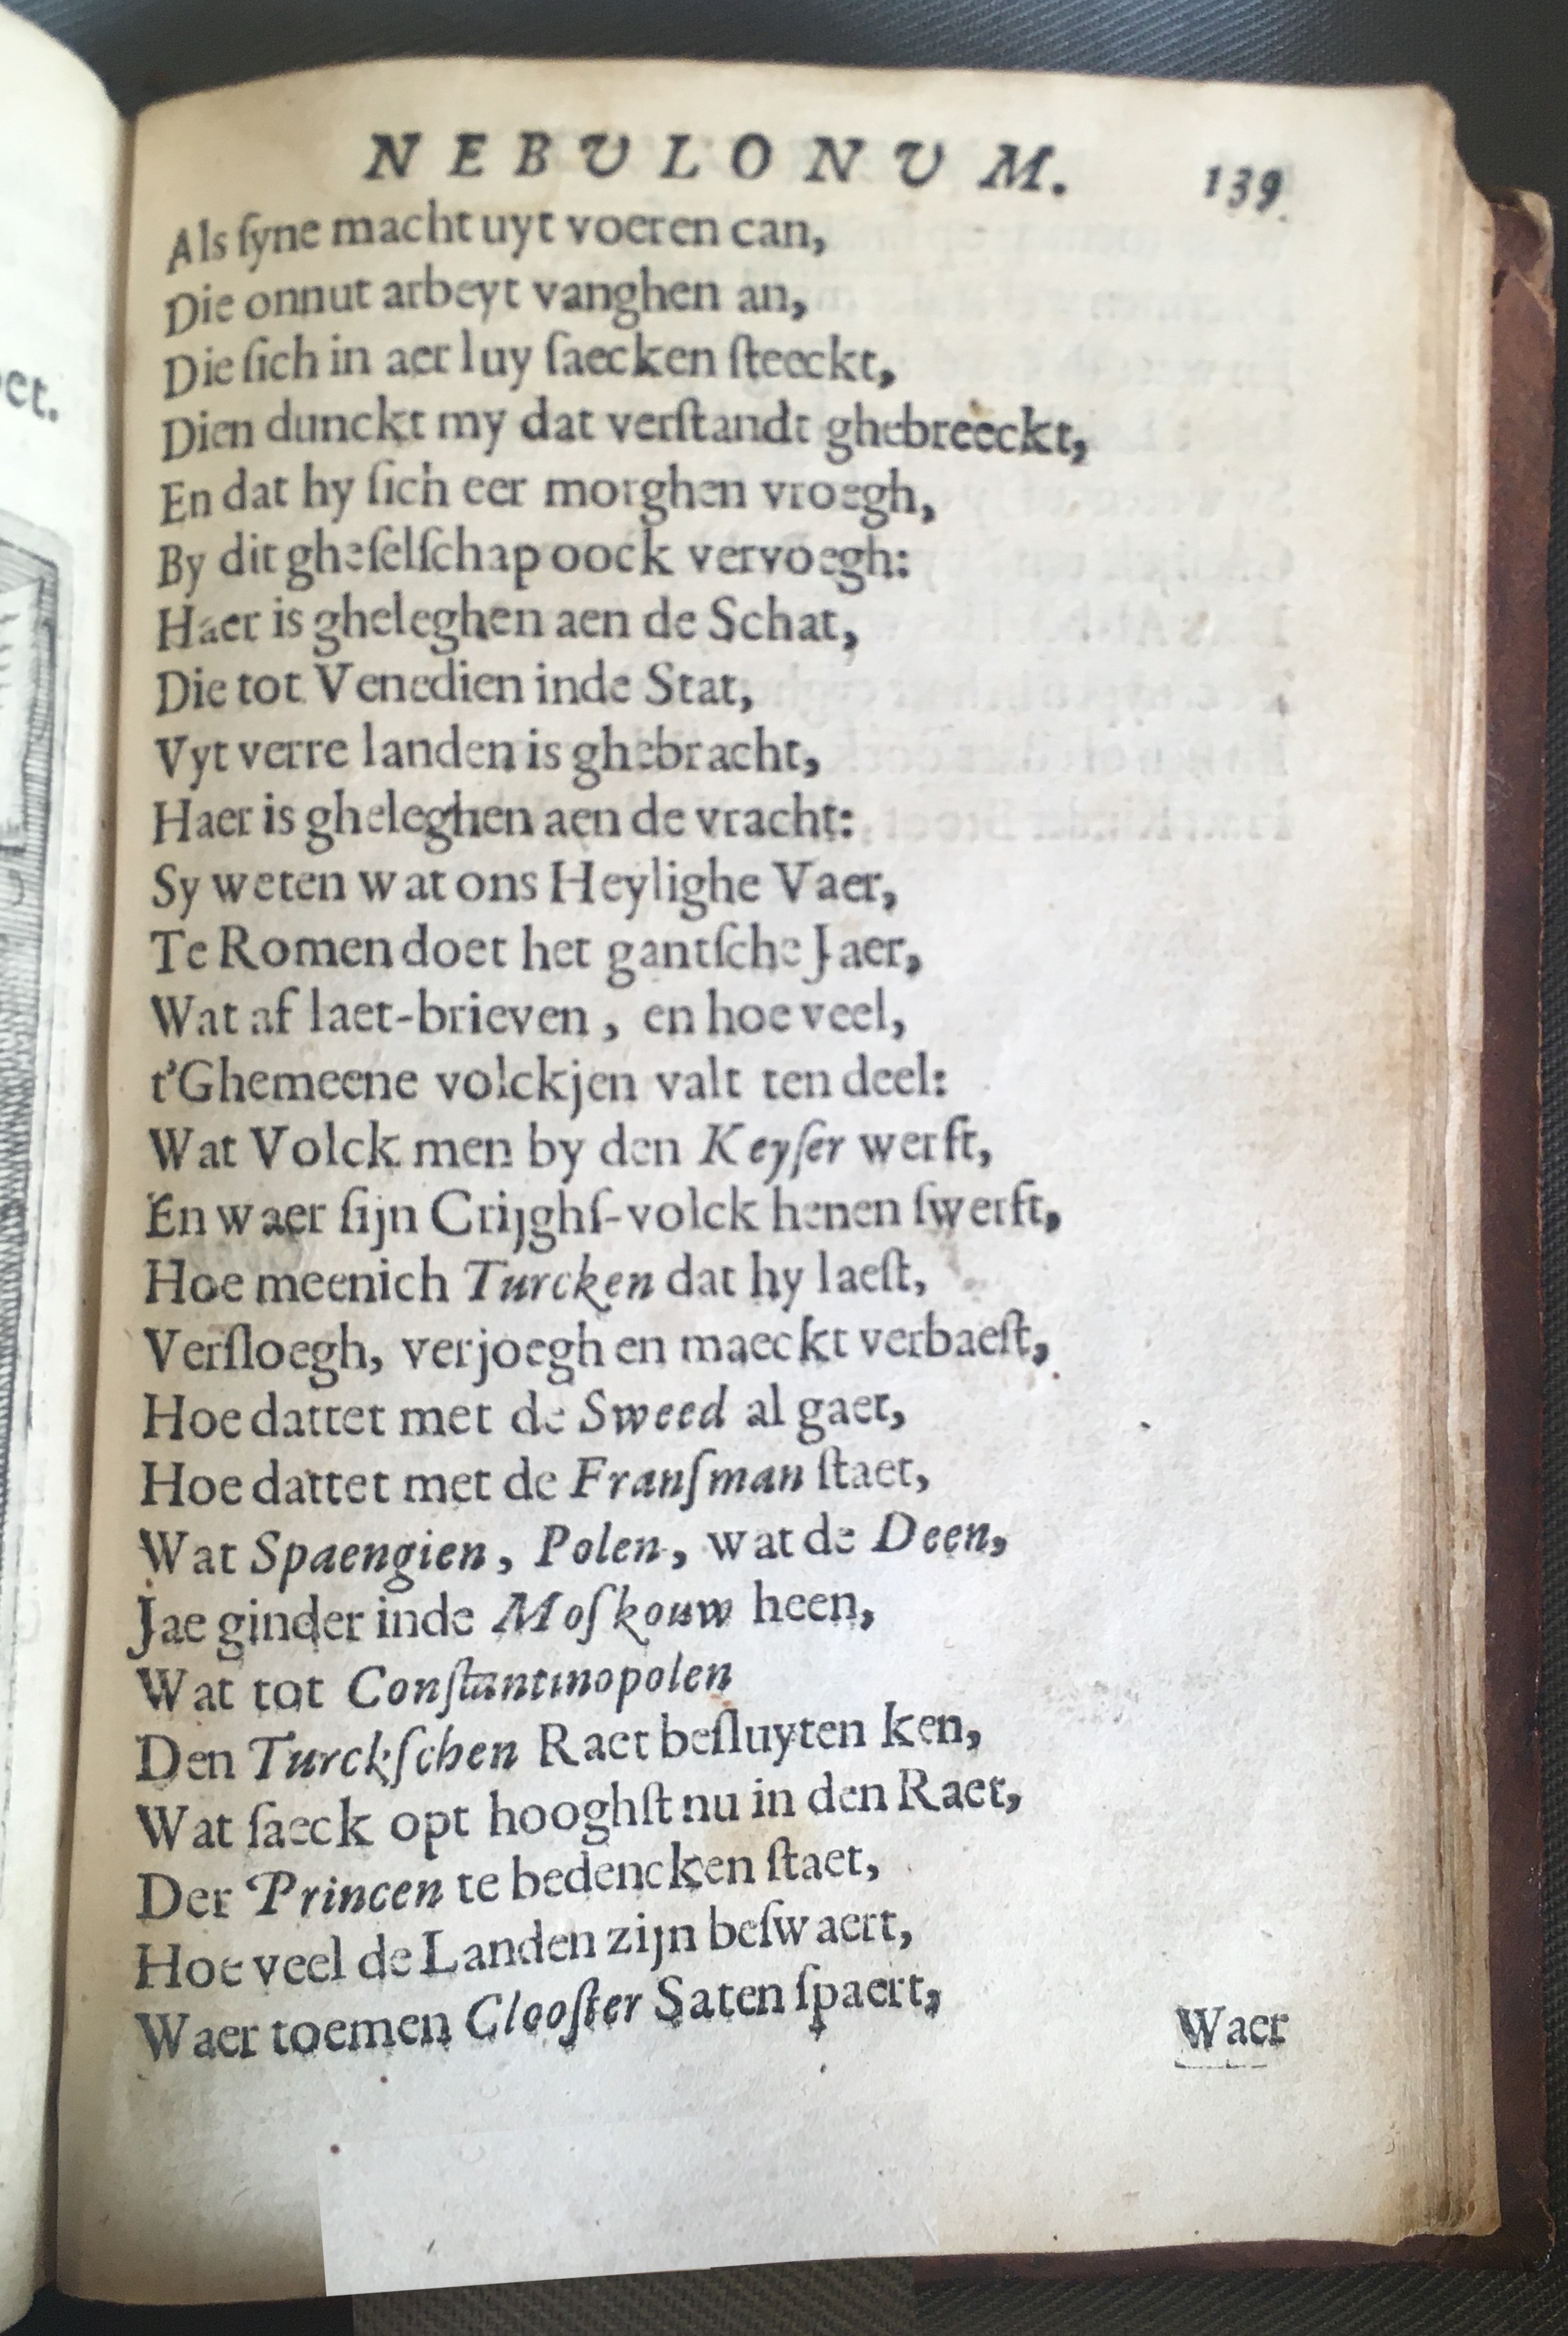 NEBULONUM. 139.
Als ſyne macht uyt voeren can,
Die onnut arbeyt vanghen an,
Die ſich in aer luy ſaecken ſteeckt,
Dien dunckt my dat verſtandt ghebreeckt,
En dat hy ſich eer morghen vroegh,
By dit gheſelſchap oock vervoegh:
Haer is gheleghen aen de Schat,
Die tot Venedien inde Stat,
Vyt verre landen is ghebracht,
Haer is gheleghen aen de vracht:
Sy weten wat ons Heylighe Vaer,
Te Romen doet het gantſche Jaer,
Wat af laet-brieven, en hoe veel,
t'Ghemeene volckjen valt ten deel:
Wat Volck men by den Keyſer werft,
En waer ſijn Crijghſ-volck henen ſwerft,
Hoe meenich Turcken dat hy laeſt,
Verſloegh, verjoegh en maeckt verbaeſt,
Hoe dattet met de Sweed al gaet,
Hoe dattet met de Franſman ſtaet,
Wat Spaengien, Polen, wat de Deen,
Jae ginder inde Moſkouw heen,
Wat tot Conſtantinopolen
Den Turckſchen Raet beſluyten ken,
Wat ſaeck opt hooghſt nu in den Raet,
Der Princen te bedencken ſtaet,
Hoe veel de Landen zijn beſwaert,
Waer toemen Clooſter Saten ſpaert,
Waer